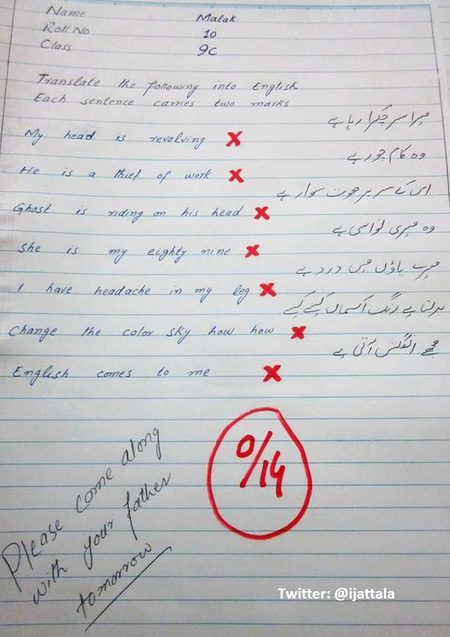 Name Malak
Roll No 10
Class 9c
Translate the following into English
Each sentence carries two marks
میرا سر چکرا رہا ہے
My head is revolving
وہ کام چور ہے
He is a thief of work
اس کے سر پر بھوت سوار ہے
Ghost is riding on his head
وہ میری نواسی ہے
She is my eighty nine
میرے پاؤں میں درد ہے
I have headache in my leg
بدلتا ہے رنگ آسماں کیسے کیسے
Change the color sky how how
مجھے انگلش آتی ہے
English comes to me.
0/14
Please come along
with your father
tomorrow
Twitter: @ijattala